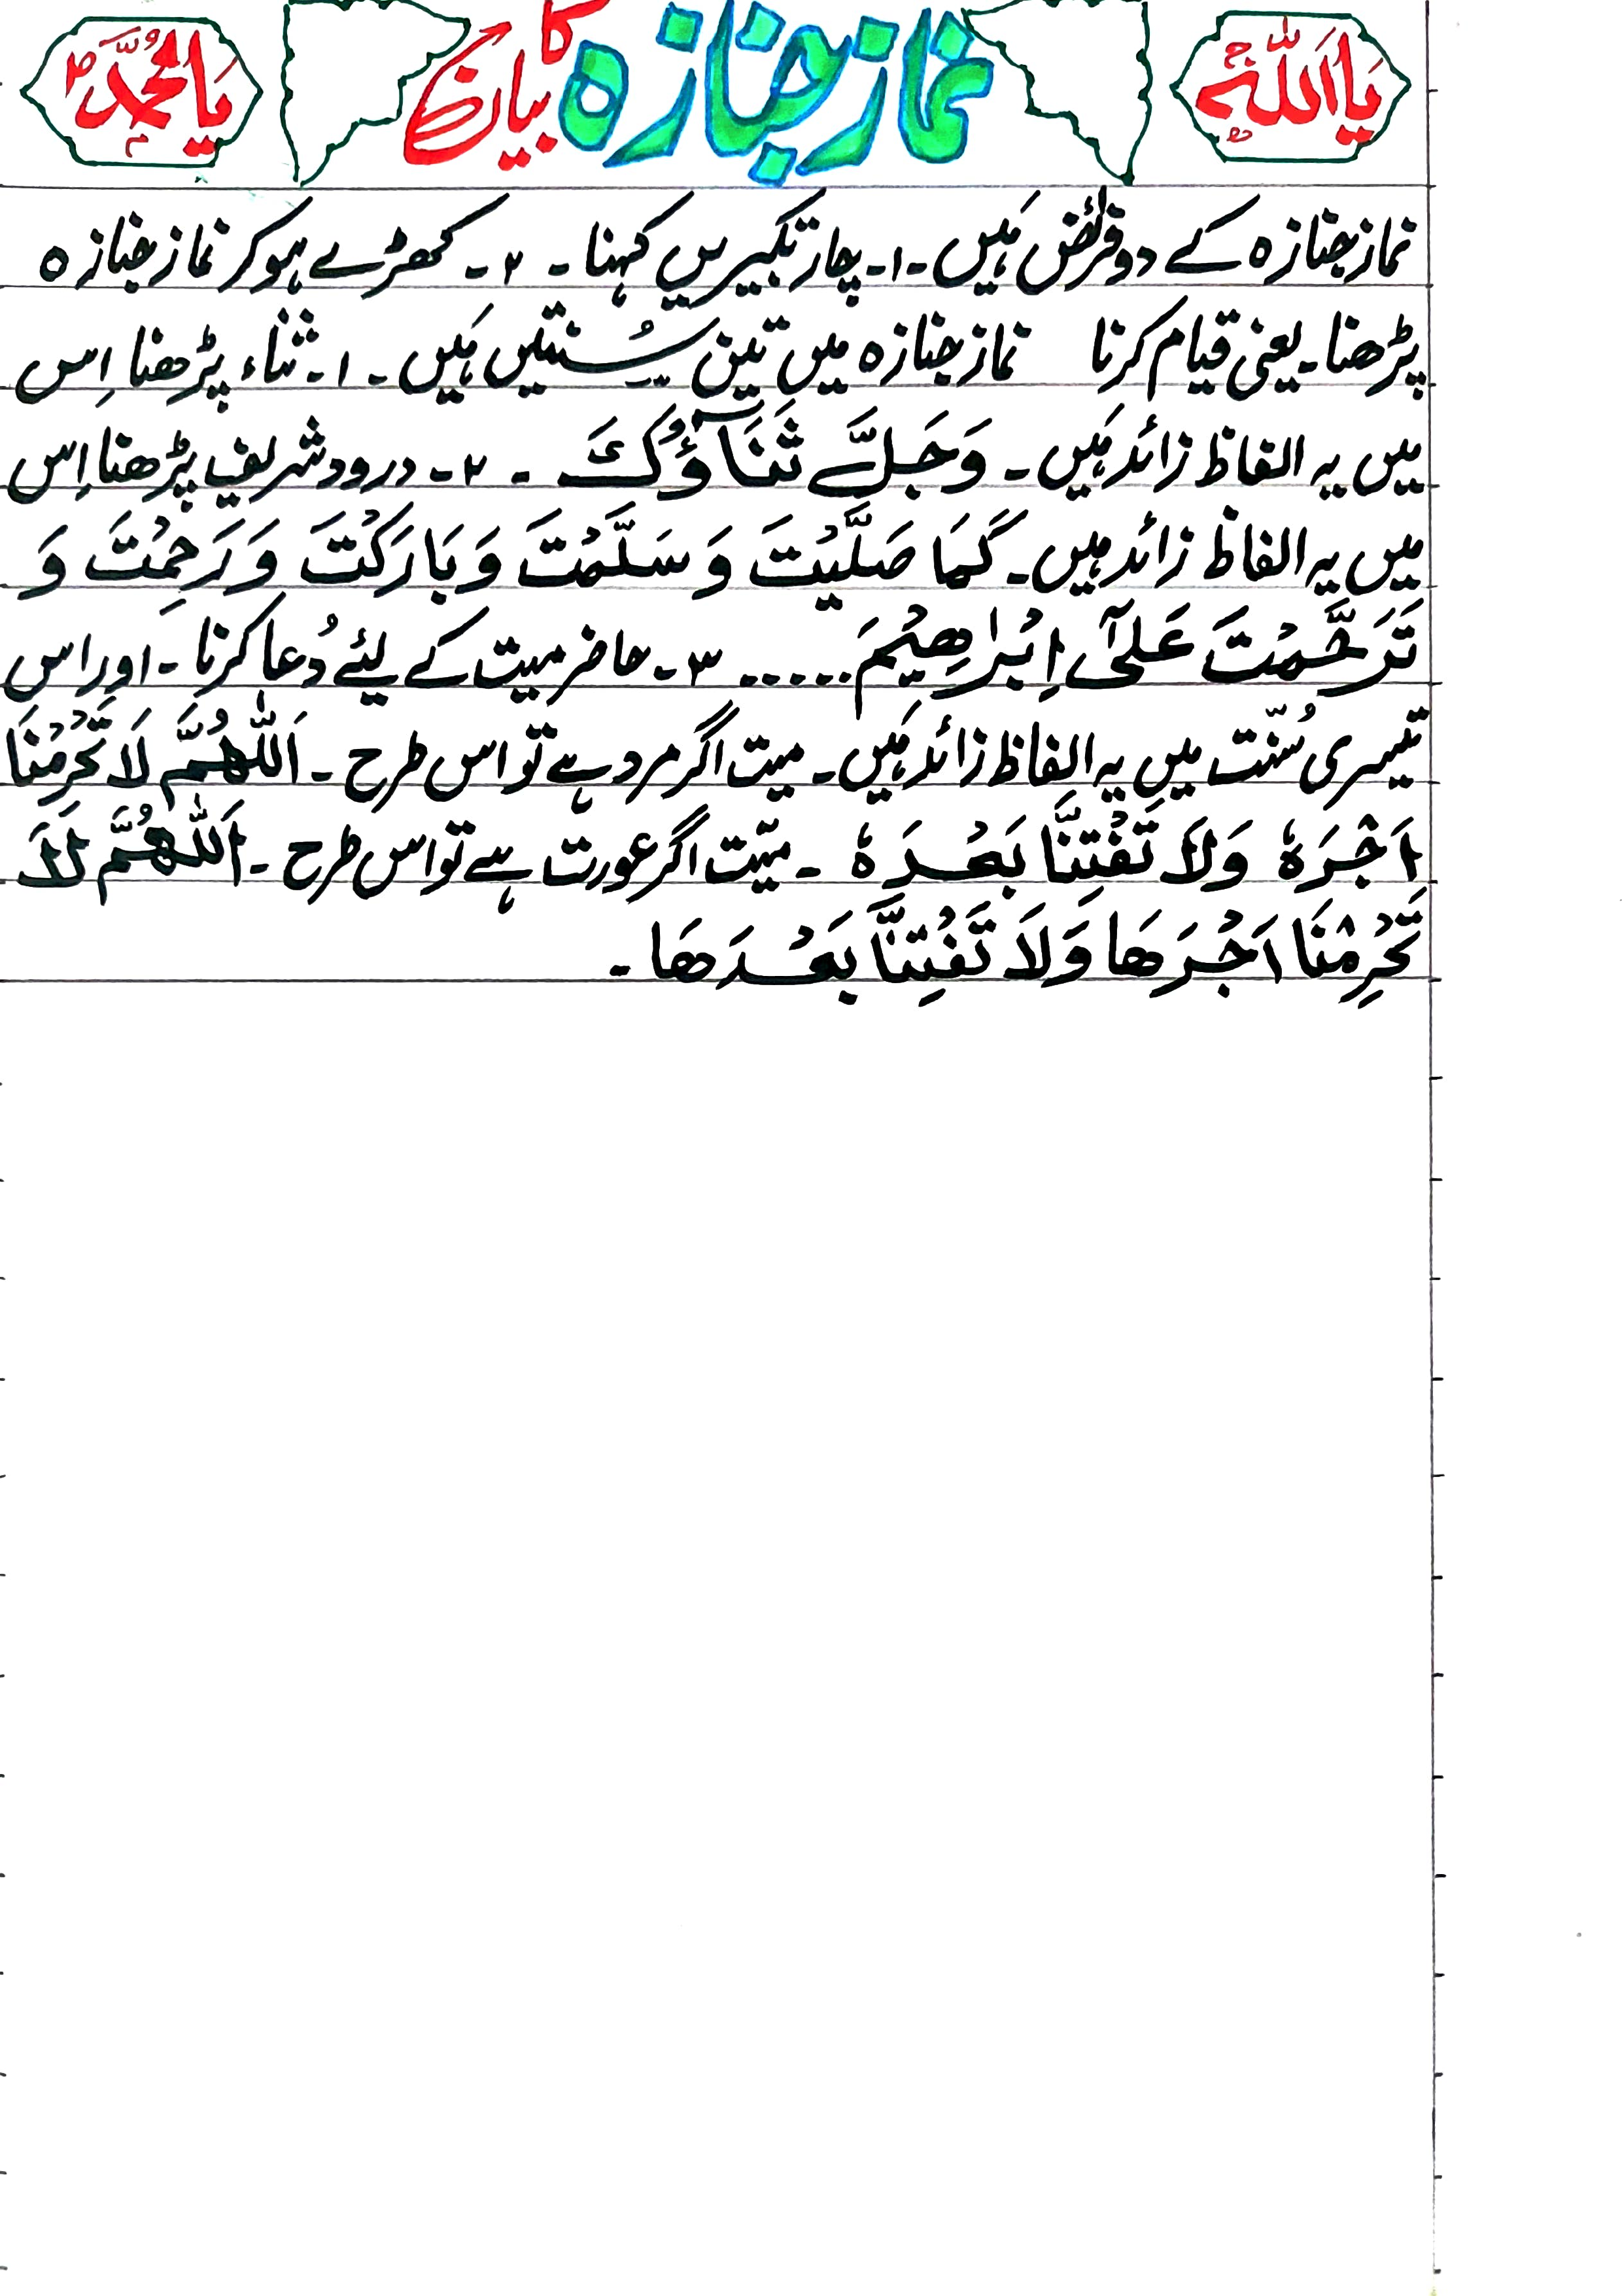 یَا اَللہُ نماز جنازہ کا بیان یَا مُحَمَّدؐ
نماز جنازہ کے دو فرائض ہَیں۔ ۱۔ چار تکبیریں کہنا۔ ۲۔ کھڑے ہو کر نماز جنازہ
پڑھنا۔ یعنی قیام کرنا نماز جنازہ میں تین سُنتیں ہَیں۔ ۱۔ ثناء پڑھنا اِس
میں یہ الفاظ زائد ہَیں۔ وَجَلَّ ثَنَآؤُکَ ۔ ۲۔ درود شریف پڑھنا اِس
میں یہ الفاظ زائد ہیں۔ کَمَا صَلَّیْتَ وَ سَلَّمْتَ وَ بَارَکْتَ وَ رَحِمْتَ وَ
تَرَحَّمْتَ عَلیٰٓ اِبْرٰاھِیْمَ...... ۳۔ حاضر میت کے لیئے دُعا کرنا۔ اور اس
تیسری سُنّت میں یہ الفاظ زائد ہَیں۔ میت اگر مرد ہے تو اس طرح ۔ اَللّٰھُمَّ لَا تَحْرِمْنَا
اَجْرَہٗ وَلَا تَفْتِنَّا بَعْدَہٗ ۔ میّت اگر عورت ہے تو اس طرح ۔ اَللّٰھُمَّ لَا
تَحْرِمْنَا اَجْرَھَا وَلَا تَفْتِنَّا بَعْدَھَا ۔